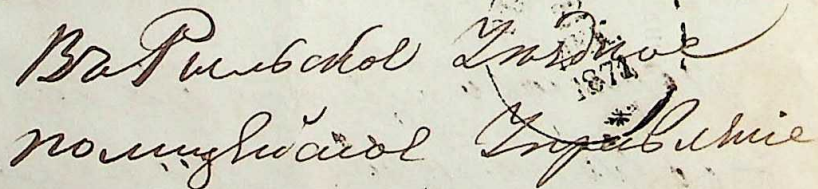 Въ Рыльское Уѣздное
1871
полицейское Управленіе